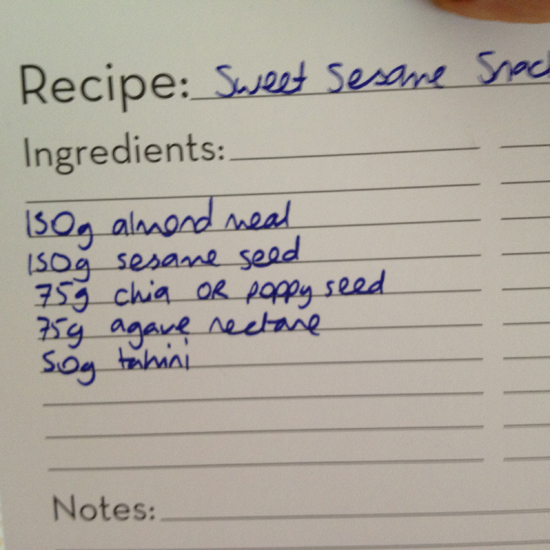 Recipe: Sweet Sesame Snac
Ingredients:
150g almond meal
150g sesame seed
75g chia OR poppy seed
75g agave nectare
50g tahini
Notes: